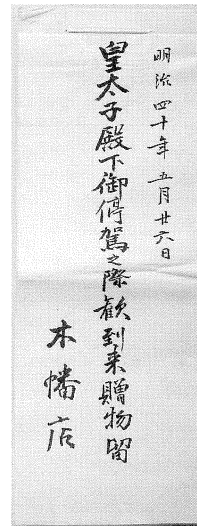 明治四十年五月廿六日
皇太子殿下御停駕之際歓到来贈物留
木幡店